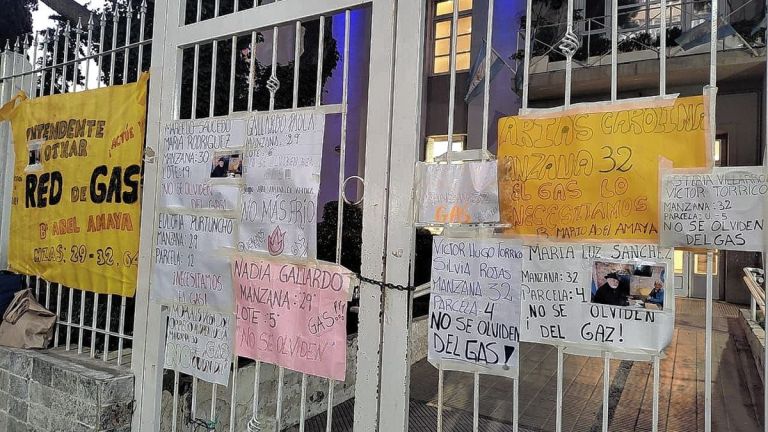 INTENDENTE
OTHAR
¡ACTÚE!
RED de GAS!
Bº ABEL AMAYA
MZAS: 29-32, 64
MARCELO SAUCEDO
MARIA RODRIGUEZ
MANZANA: 30
LOTE: 19
¡NO SE OLVIDEN
DEL GAS!
GALLARDO PAOLA
MANZANA: 29
LOTE: 6
NO MAS FRIO
EULOFIA PURTUNCHO
MANZANA: 29
PARCELA: 12
¡NECESITAMOS
EN GAS!
NADIA GALLARDO
MANZANA: 29
LOTE: 5
GAS!!!
"NO SE OLVIDEN"
MANZANA 32
GAS
ARIAS CAROLINA
MANZANA 32
EL GAS LO
NECESITAMOS
Bº MARIO ABEL AMAYA
VICTOR TORRICO
MANZANA: 32
PARCELA: 5
NO SE OLVIDEN
DEL GAS!
VICTOR HUGO TORRICO
SILVIA ROJAS
MANZANA 32
PARCELA 4
NO SE OLVIDEN
DEL GAS!
MARIA LUZ SANCHEZ
MANZANA: 32
PARCELA: 4
NO SE OLVIDEN
¡DEL GAZ!